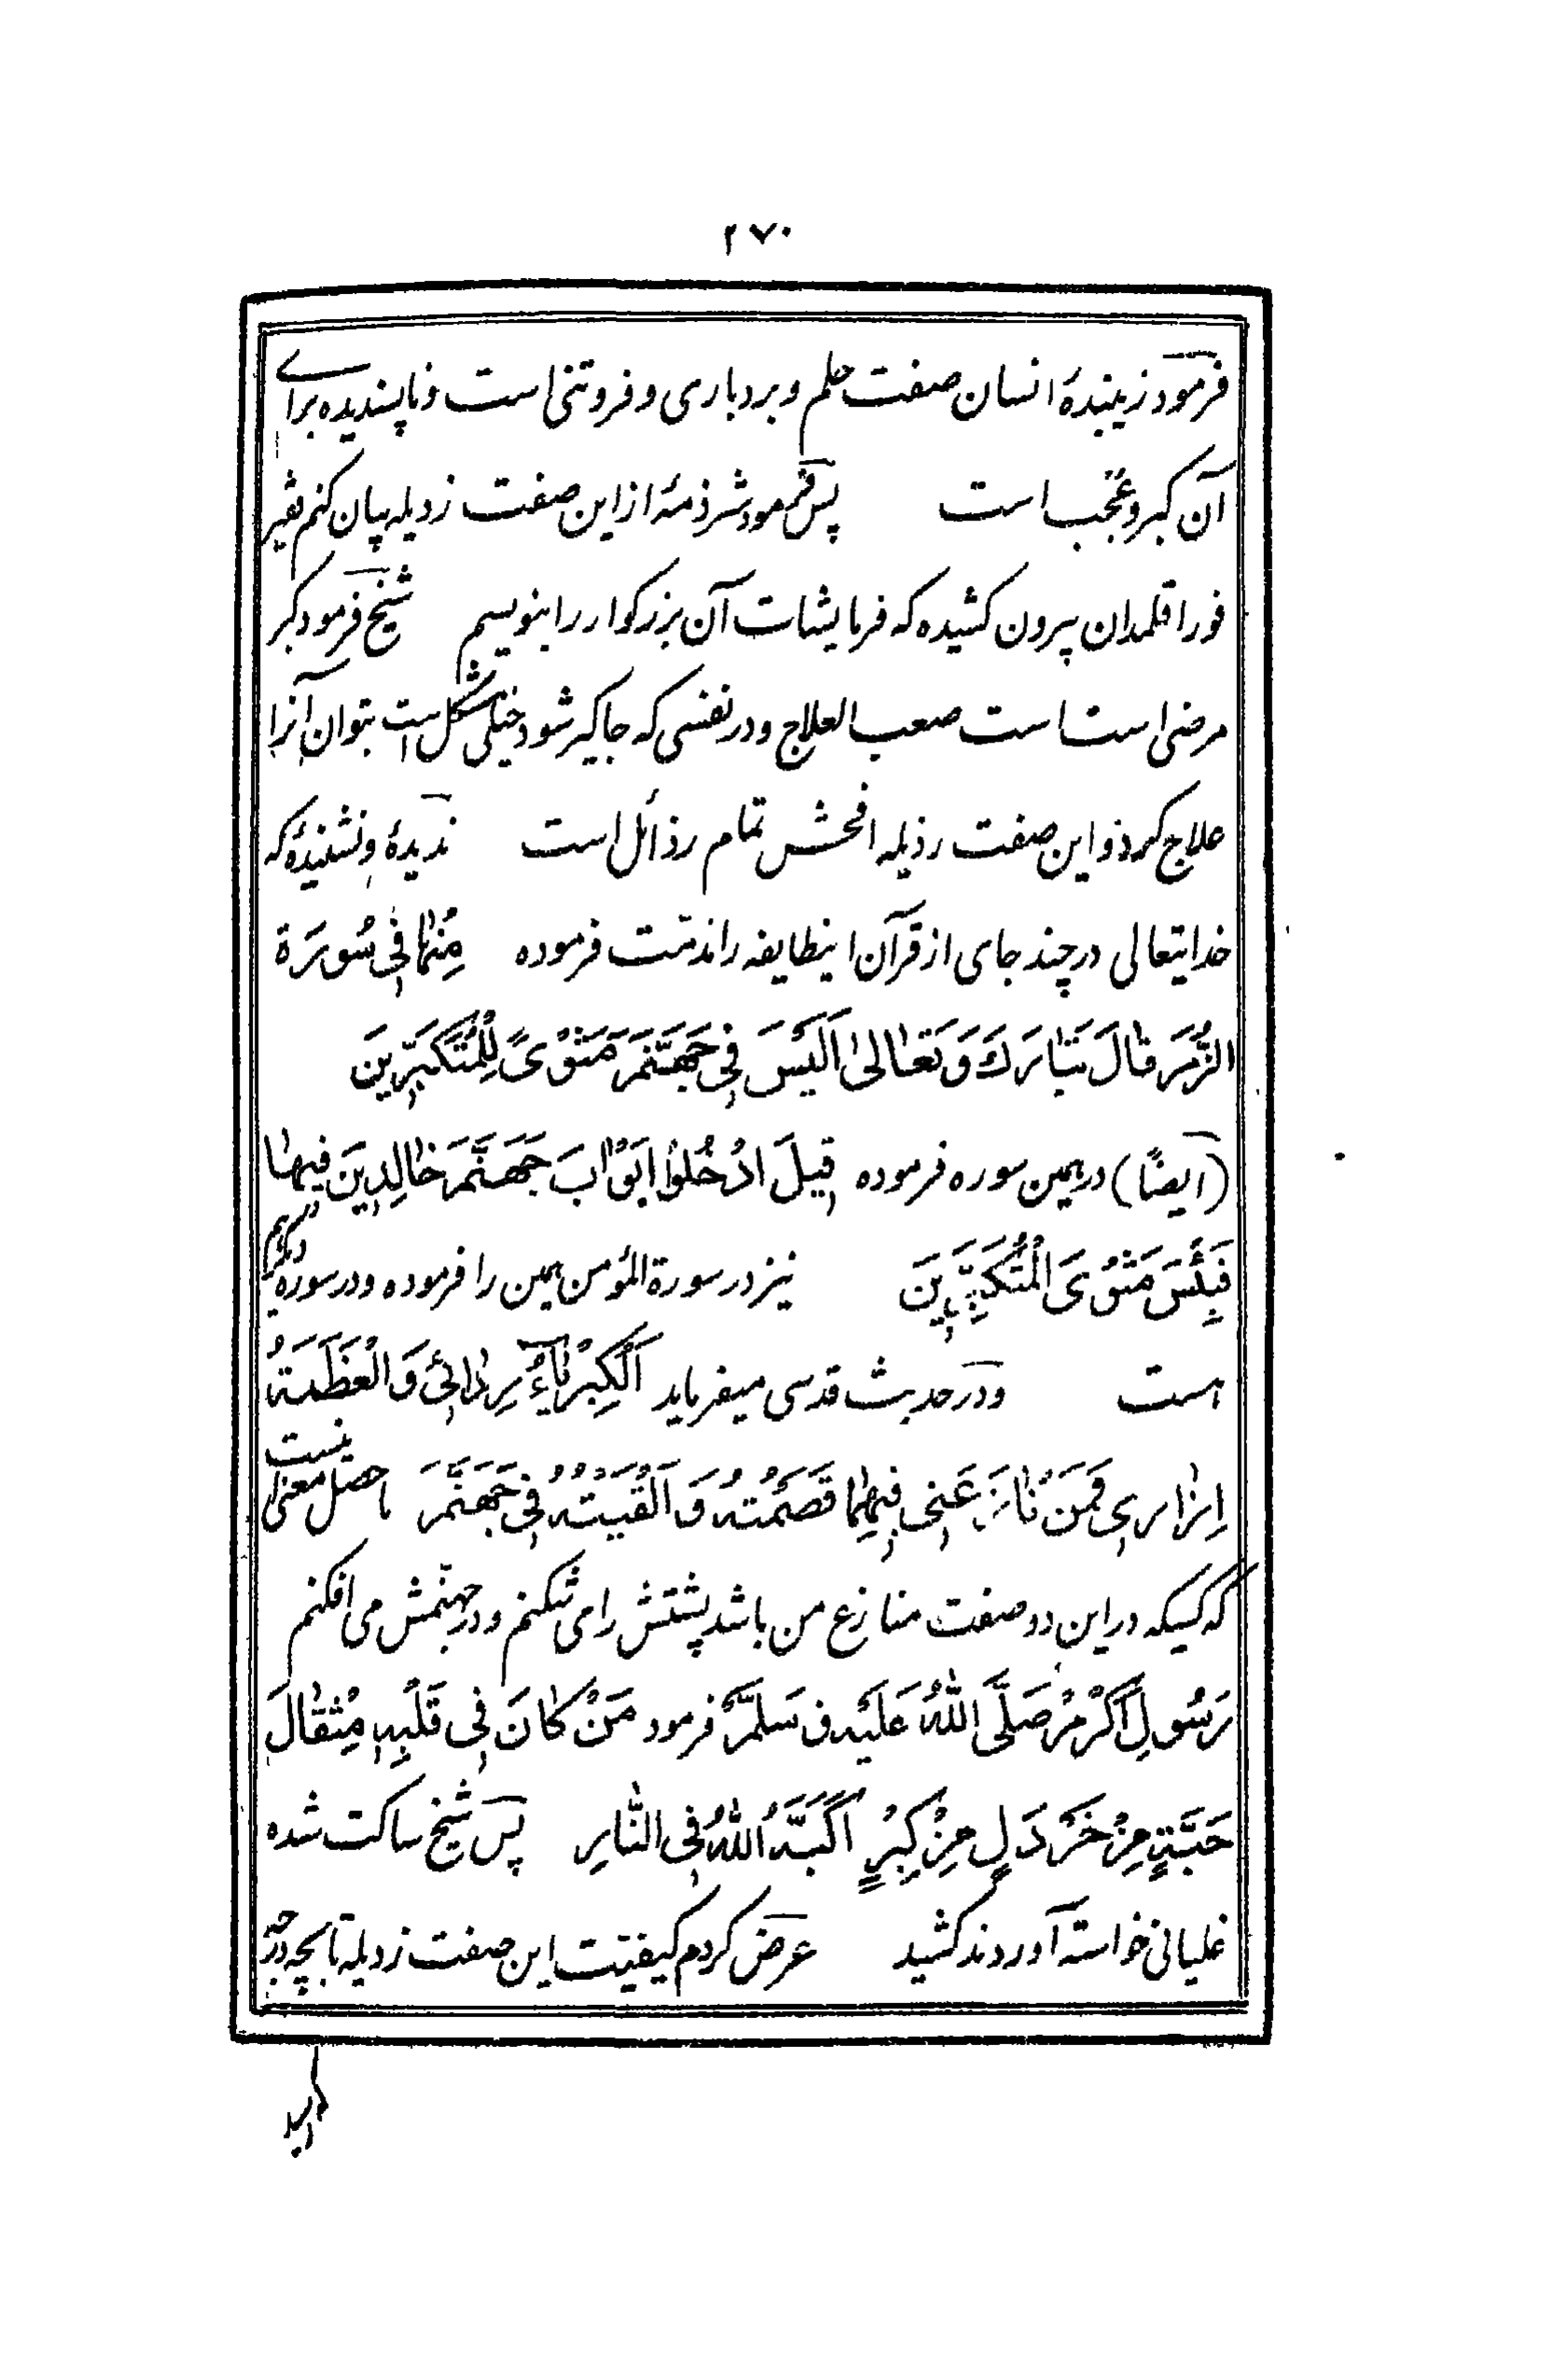 ۲۷۰
فرمود زیبندهٔ انسان صفت حلم و بردباری و فروتنی است و ناپسندیده برای
آن کبر و عُجب است پس فرمود شرذمهٔ از این صفت زدیله بیان کنم فقیر
فورا قلمدان بیرون کشیده که فرمایشات آن بزرگوار را بنویسم شیخ فرمود کبر
مرضی است است صعب العلاج و در نفسی که جاگیر شود خیلی مشکل است بتوان آنرا
علاج کرد و این صفت رذیله افحش تمام رذائل است ندیدهٔ و نشنیدهٔ که
خدایتعالی در چند جای از قرآن اینطایفه را مذمّت فرموده مِنْهٰا فِی سُورَة
الزُّمَر قٰالَ تَبٰارَكَ وَ تَعٰالىٰ اَلَیْسَ فِی جَهَنَّمَ مَثْوًى لِلْمُتَكَبِّرِینَ
(ایضًا) در همین سوره فرموده قِیلَ ادْخُلُوا اَبْوٰابَ جَهَنَّمَ خٰالِدِینَ فِیهٰا
فَبِئْسَ مَثْوَى الْمُتَكَبِّرِینَ نیز در سورة المؤمن همین را فرموده و در سورهٔ دیگر هم
است و در حدیث قدسی میفرماید اَلْكِبْرِیٰاءُ رِدٰائِی وَ الْعَظَمَةُ
اِزٰارِی فَمَنْ نٰازَعَنِی فِیهِمٰا قَصَمْتُهُ وَ اَلْقَیْتُهُ فِی جَهَنَّمَ ماحصل معنی اینست
که کسیکه در این دو صفت منازع من باشد پشتش را می شکنم و در جهنّمش می افکنم
رَسُولِ اَكْرَمْ صَلَّى اللّٰهُ عَلَیْهِ وَ سَلَّمَ فرمود مَنْ كٰانَ فِی قَلْبِهِ مِثْقٰالَ
حَبَّةٍ مِنْ خَرْدَلٍ مِنْ كِبْرٍ اَكَبَّهُ اللّٰهُ فِی النّٰارِ پس شیخ ساکت شده
غلیانی خواسته آوردند کشید عرض کردم کیفیّت این صفت زدیله تا بچه درجه